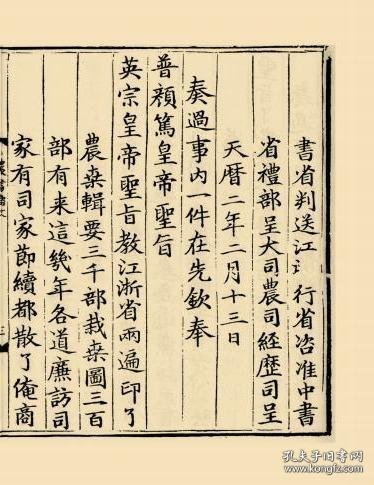 書省判送江行省咨准中書
省禮部呈大司農司經歷司呈
天暦二年二月十三日
奏過事內一件在先欽奉
普顏篤皇帝聖旨
英宗皇帝聖旨教江浙省兩遍印了
農桒輯要三千部栽桒圖三百
部有来這幾年各道廉訪司
家有司家節續都散了俺商
三
孔夫子旧书网
www.kongfz.com